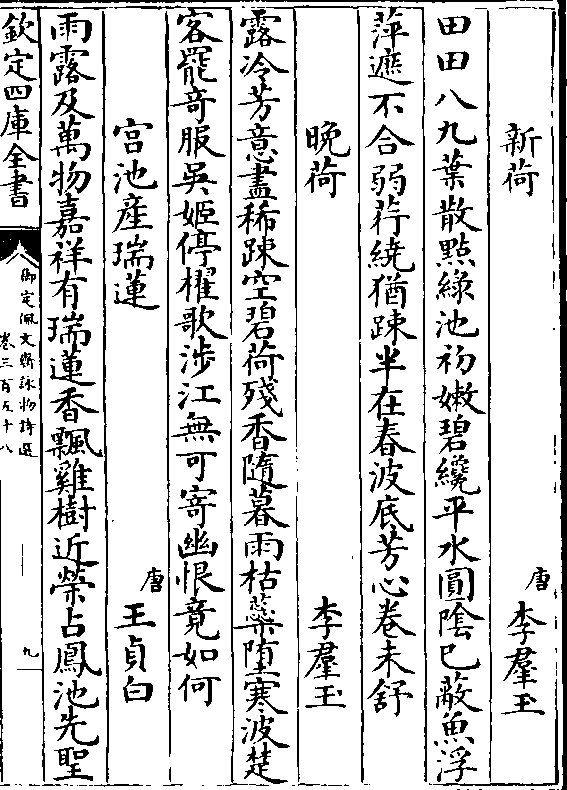 新荷
唐 李羣玉
田田八九葉散點綠池初嫩碧纔平水圓陰已蔽魚浮
萍遮不合弱荇繞猶踈半在春波底芳心卷未舒
晚荷
李羣玉
露冷芳意盡稀踈空碧荷殘香隨暮雨枯蘂堕寒波楚
客罷竒服吳姬停櫂歌涉江無可寄幽恨竟如何
宫池產瑞蓮
唐 王貞白
雨露及萬物嘉祥有瑞蓮香飄雞樹近榮占鳳池先聖
欽定四庫全書
御定佩文齋詠物詩選
卷三百五十八
九